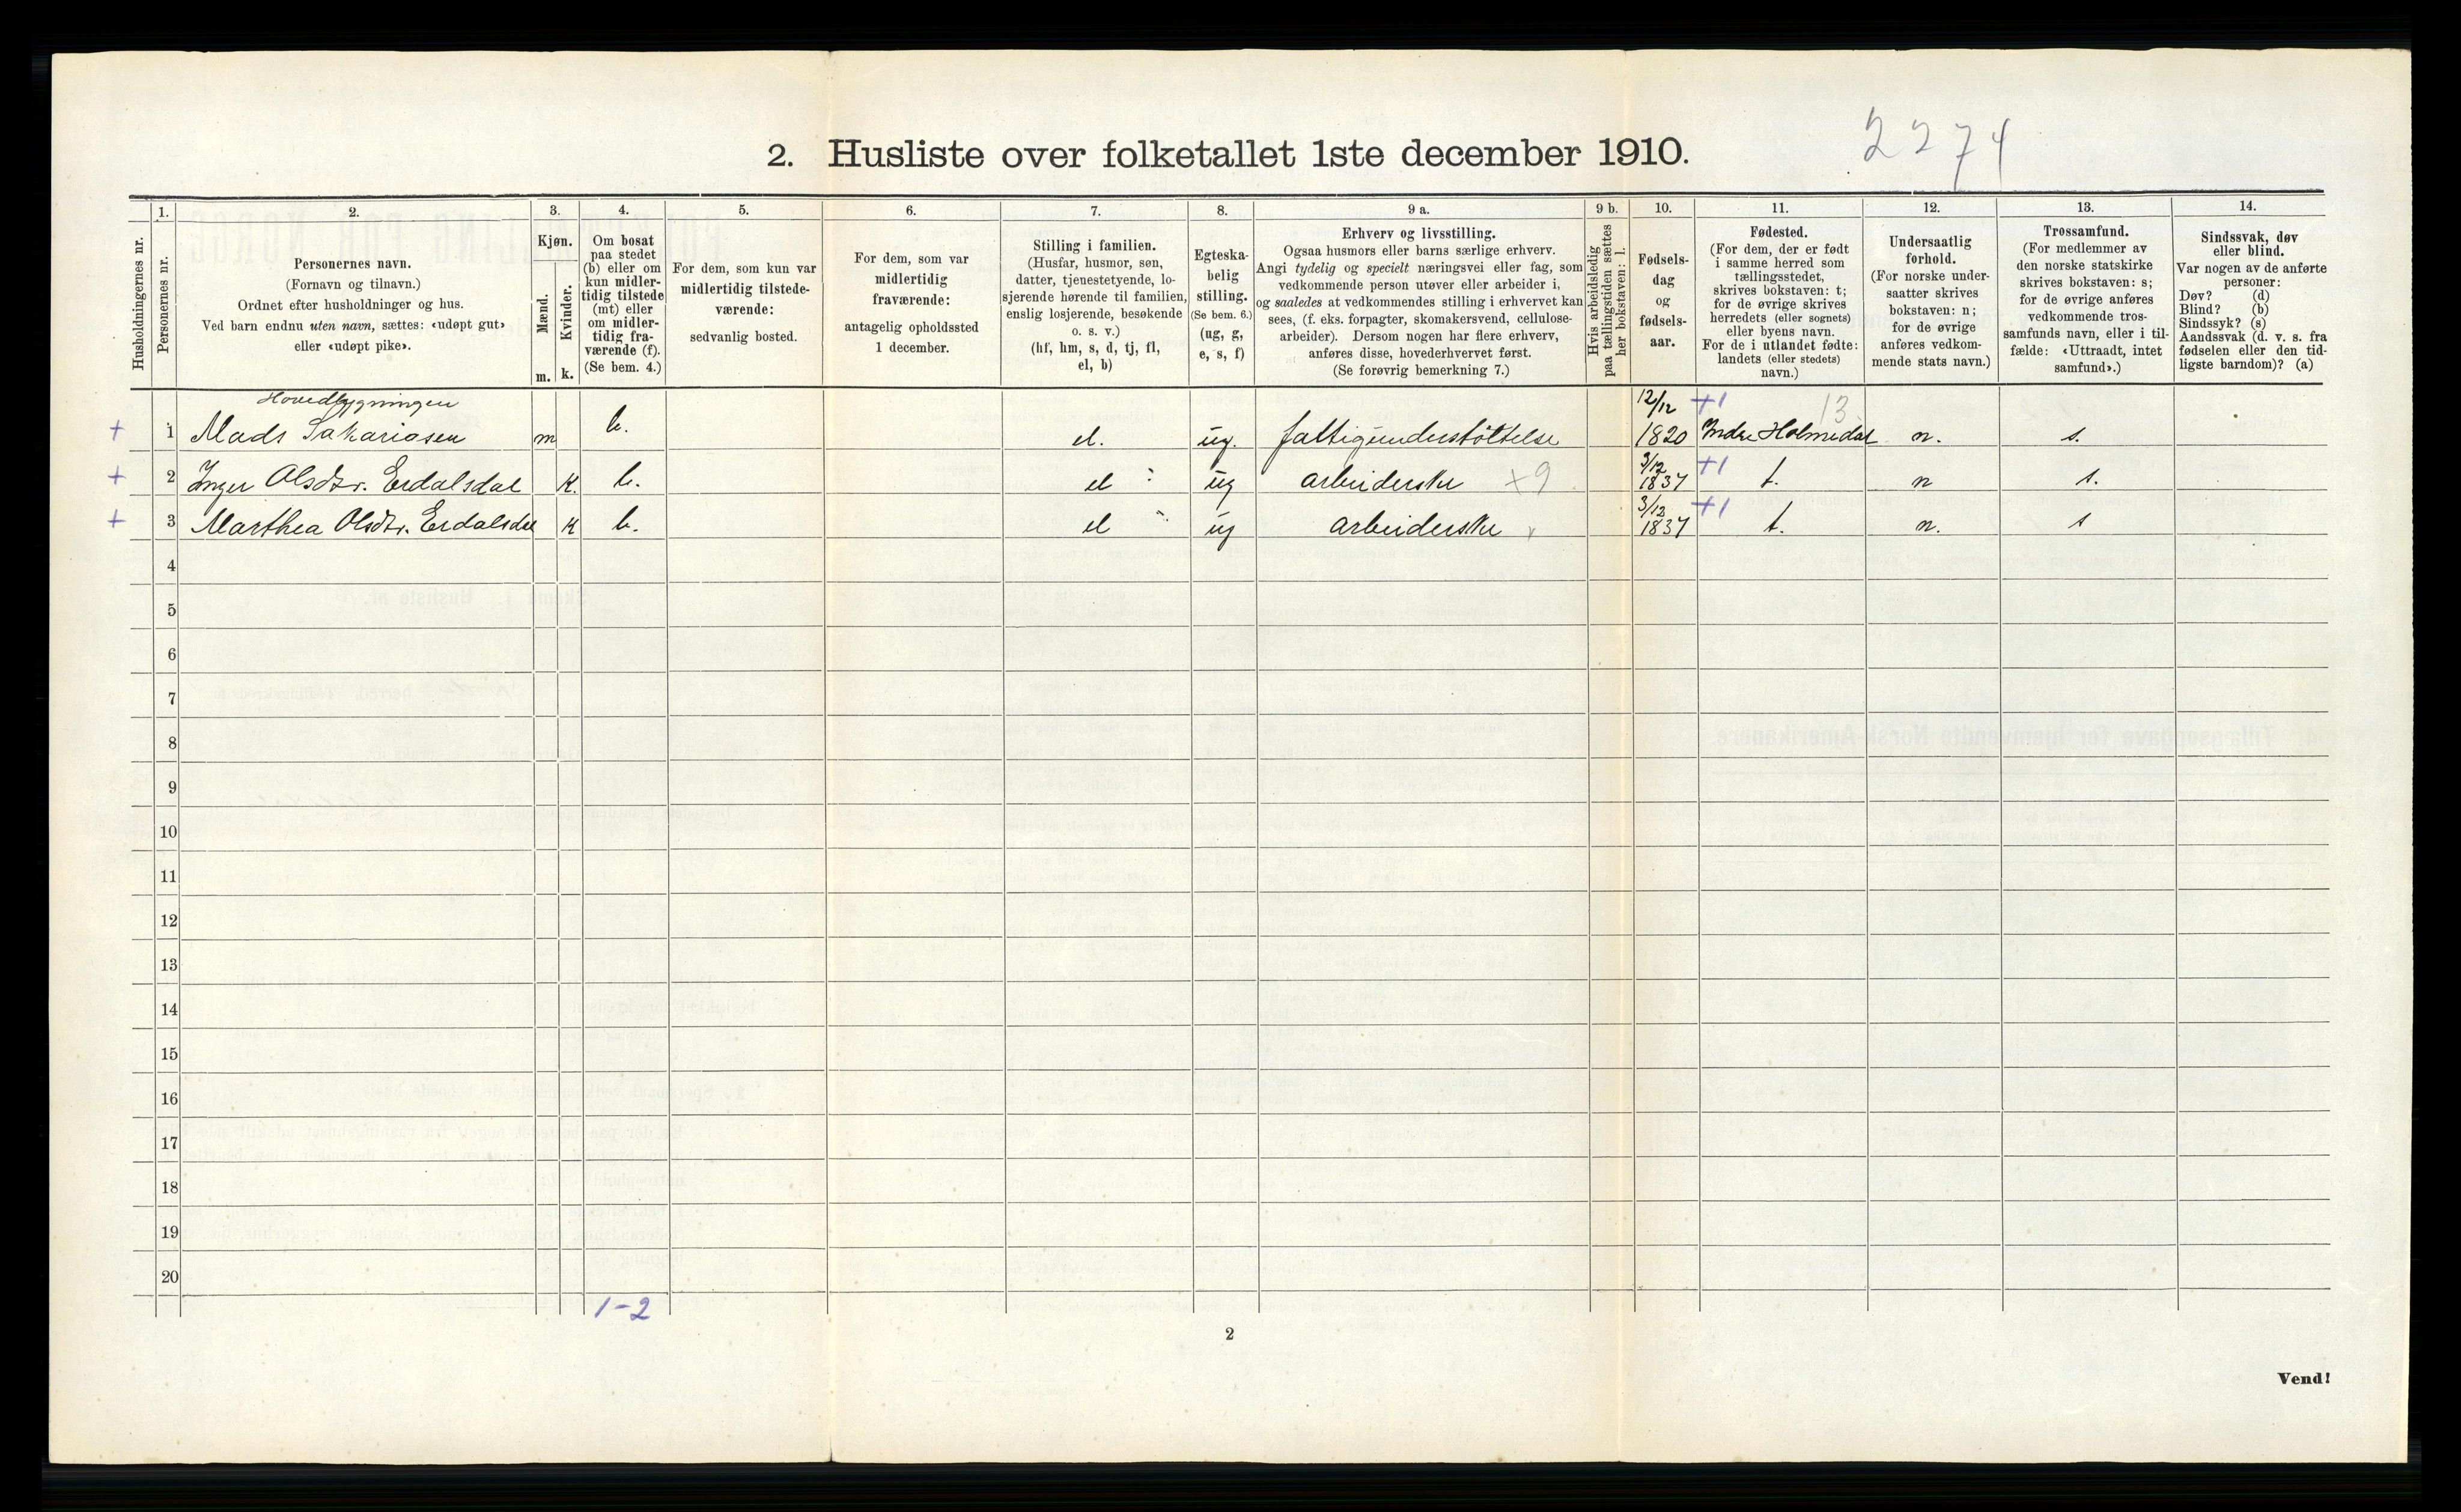 2274
2. Husliste over folketallet 1ste december 1910.
Husholdningernes nr.
1.
Personernes nr.
2.
Personernes navn.
(Fornavn og tilnavn.)
Ordnet efter husholdninger og hus.
Ved barn endnu uten navn, sættes: «udøpt gut»
eller «udøpt pike».
3.
Kjøn.
Mænd.
Kvinder.
m. k.
4.
Om bosat
paa stedet
(b) eller om
kun midler-
tidig tilstede
(mt) eller
om midler-
tidig fra-
værende (f).
(Se bem. 4.)
5.
For dem, som kun var
midlertidig tilstede-
værende:
sedvanlig bosted.
6.
For dem, som var
midlertidig
fraværende:
antagelig opholdssted
1 december.
7.
Stilling i familien.
(Husfar, husmor, søn,
datter, tjenestetyende, lo-
sjerende hørende til familien,
enslig losjerende, besøkende
o. s. v.)
(hf, hm, s, d, tj, fl,
el, b)
8.
Egteska-
belig
stilling.
(Se bem. 6.)
(ug, g,
e, s, f)
9 a.
Erhverv og livsstilling.
Ogsaa husmors eller barns særlige erhverv.
Angi tydelig og specielt næringsvei eller fag, som
vedkommende person utøver eller arbeider i,
og saaledes at vedkommendes stilling i erhvervet kan
sees, (f. eks. forpagter, skomakersvend, cellulose-
arbeider). Dersom nogen har flere erhverv,
anføres disse, hovederhvervet først.
(Se forøvrig bemerkning 7.)
9 b.
Hvis arbeidsledig
paa tællingstiden sættes
her bokstaven: l.
10.
Fødsels-
dag
og
fødsels-
aar.
11.
Fødested.
(For dem, der er født
i samme herred som
tællingsstedet,
skrives bokstaven: t;
for de øvrige skrives
herredets (eller sognets)
eller byens navn.
For de i utlandet fødte:
landets (eller stedets)
navn.)
12.
Undersaatlig
forhold.
(For norske under-
saatter skrives
bokstaven: n;
for de øvrige
anføres vedkom-
mende stats navn.)
13.
Trossamfund.
(For medlemmer av
den norske statskirke
skrives bokstaven: s;
for de øvrige anføres
vedkommende tros-
samfunds navn, eller i til-
fælde: «Uttraadt, intet
samfund».)
14.
Sindssvak, døv
eller blind.
Var nogen av de anførte
personer:
Døv? (d)
Blind? (b)
Sindssyk? (s)
Aandssvak (d. v. s. fra
fødselen eller den tid-
ligste barndom)? (a)
Hovedbygningen 12/12 +1 13
+ 1 Mads Sakariasen m b. el. ug. fattigunderstøttelse 1820 Indre Holmedal n. s.
3/12 +1
+ 2 Inger Olsdtr. Erdalsdal k. b. el ug arbeiderske +9 1837 t. n s.
3/12 +1
+ 3 Marthea Olsdtr. Erdalsdal k b. el ug arbeiderske 1837 t. n. s
4
5
6
7
8
9
10
11
12
13
14
15
16
17
18
19
20
1-2
2
Vend!